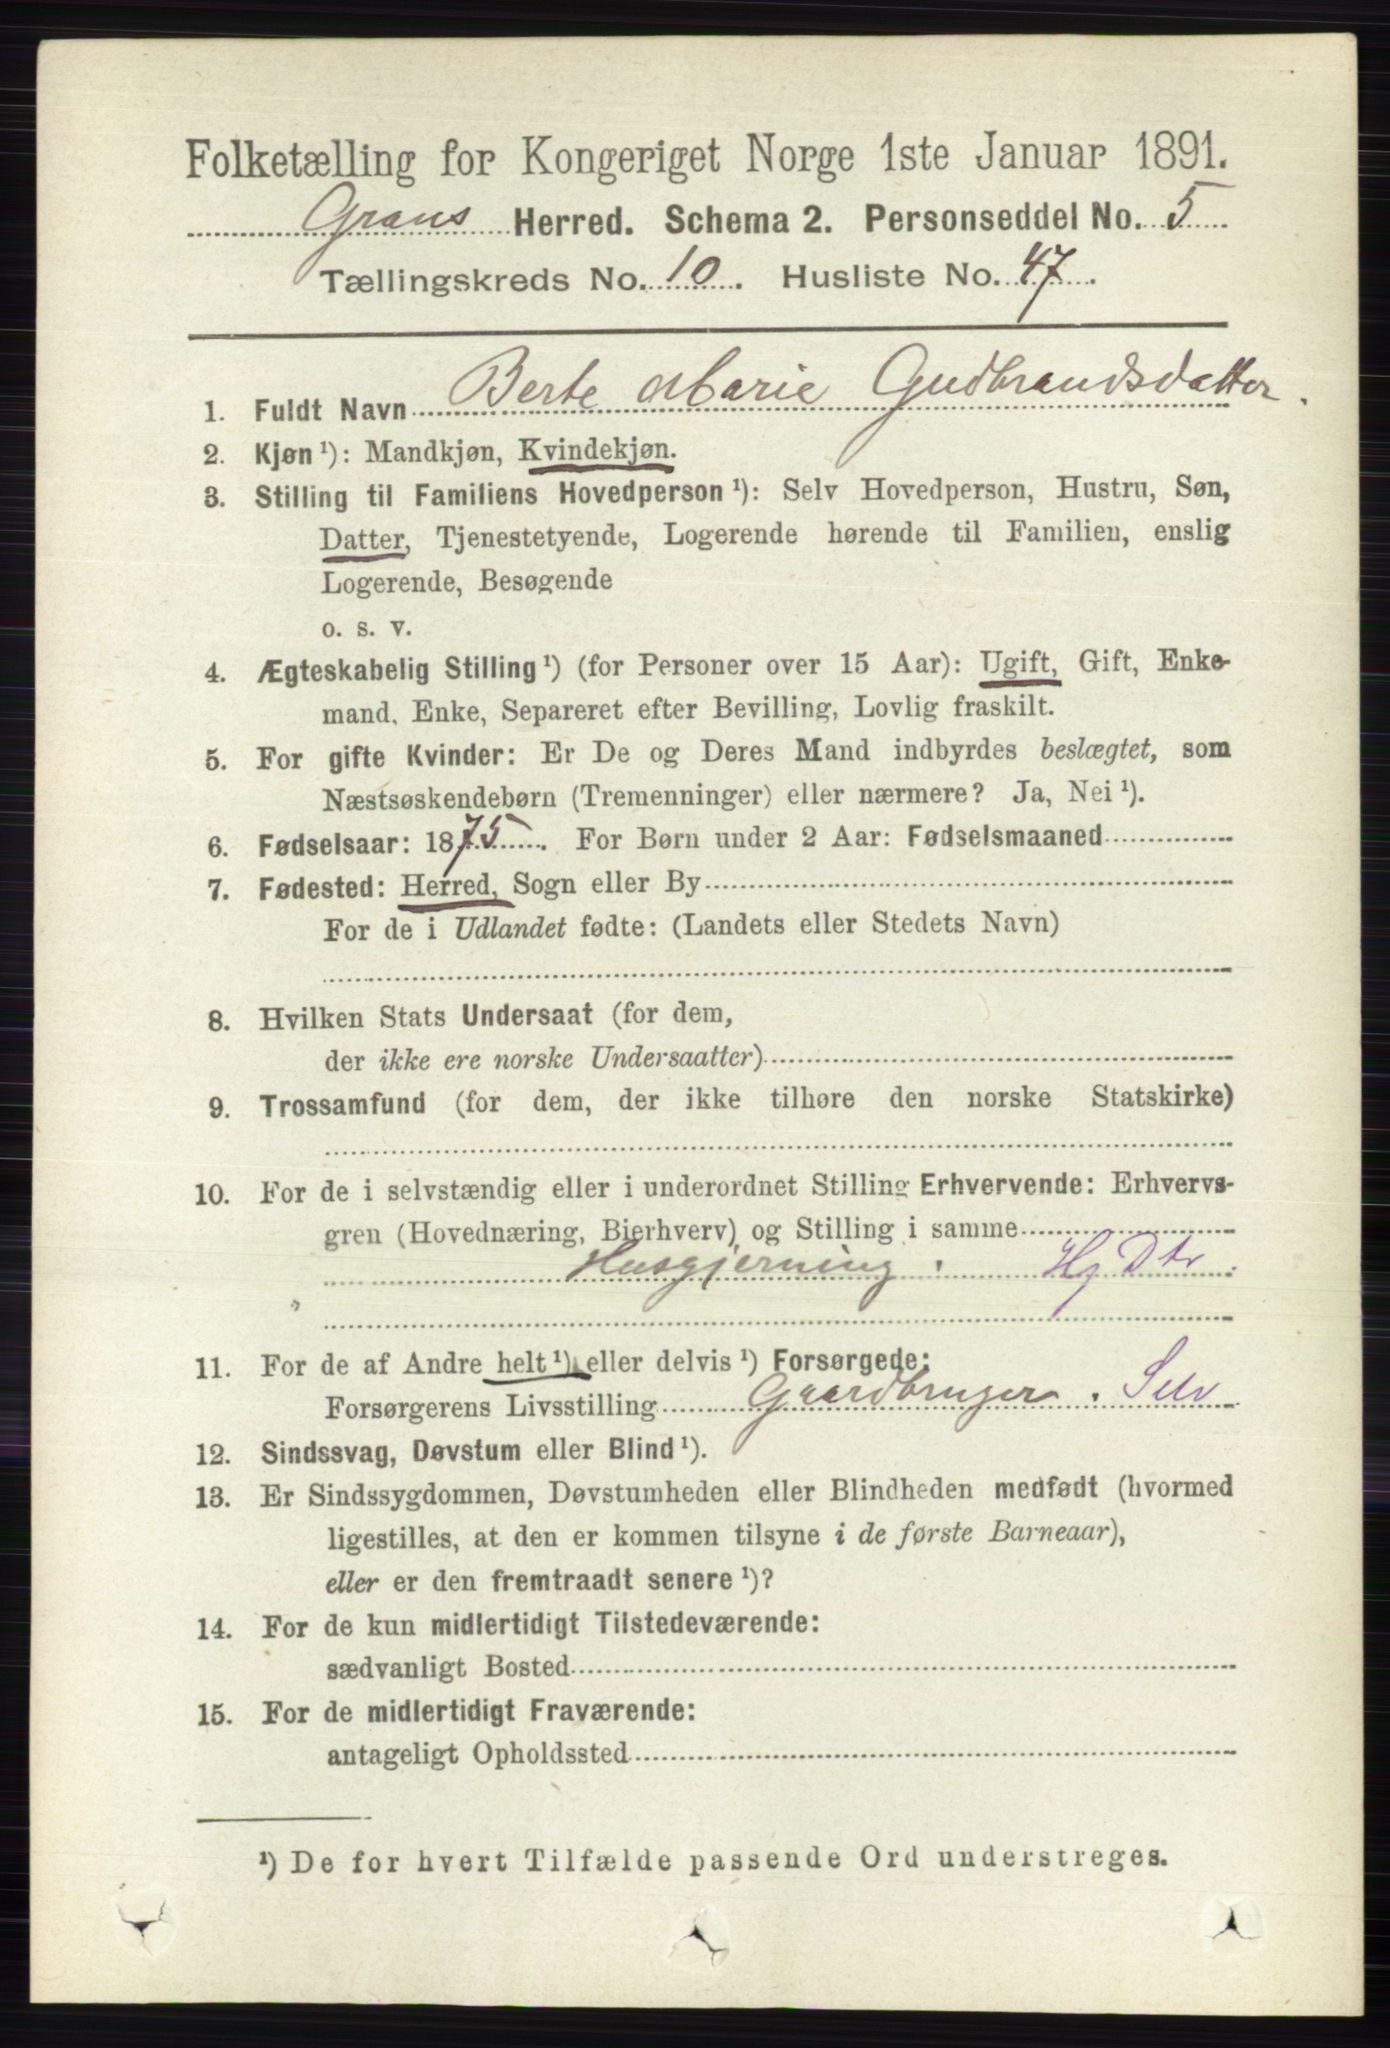 Folketælling for Kongeriget Norge 1ste Januar 1891.
Grans Herred. Schema 2. Personseddel No. 5
Tællingskreds No. 10. Husliste No. 47.
1. Fuldt Navn Berte Marie Gudbrandsdatter.
2. Kjøn ¹): Mandkjøn, Kvindekjøn.
3. Stilling til Familiens Hovedperson ¹): Selv Hovedperson, Hustru, Søn,
Datter, Tjenestetyende, Logerende hørende til Familien, enslig
Logerende, Besøgende
o. s. v.
4. Ægteskabelig Stilling ¹) (for Personer over 15 Aar): Ugift, Gift, Enke-
mand, Enke, Separeret efter Bevilling, Lovlig fraskilt.
5. For gifte Kvinder: Er De og Deres Mand indbyrdes beslægtet, som
Næstsøskendebørn (Tremenninger) eller nærmere? Ja, Nei ¹).
6. Fødselsaar: 1875. For Børn under 2 Aar: Fødselsmaaned
7. Fødested: Herred, Sogn eller By
For de i Udlandet fødte: (Landets eller Stedets Navn)
8. Hvilken Stats Undersaat (for dem,
der ikke ere norske Undersaatter)
9. Trossamfund (for dem, der ikke tilhøre den norske Statskirke)
10. For de i selvstændig eller i underordnet Stilling Erhvervende: Erhvervs-
gren (Hovednæring, Bierhverv) og Stilling i samme
Husgjerning. Hj Dtr.
11. For de af Andre helt ¹) eller delvis ¹) Forsørgede:
Forsørgerens Livsstilling Gaardbruger. Selv
12. Sindssvag, Døvstum eller Blind ¹).
13. Er Sindssygdommen, Døvstumheden eller Blindheden medfødt (hvormed
ligestilles, at den er kommen tilsyne i de første Barneaar),
eller er den fremtraadt senere ¹)?
14. For de kun midlertidigt Tilstedeværende:
sædvanligt Bosted
15. For de midlertidigt Fraværende:
antageligt Opholdssted
¹) De for hvert Tilfælde passende Ord understreges.